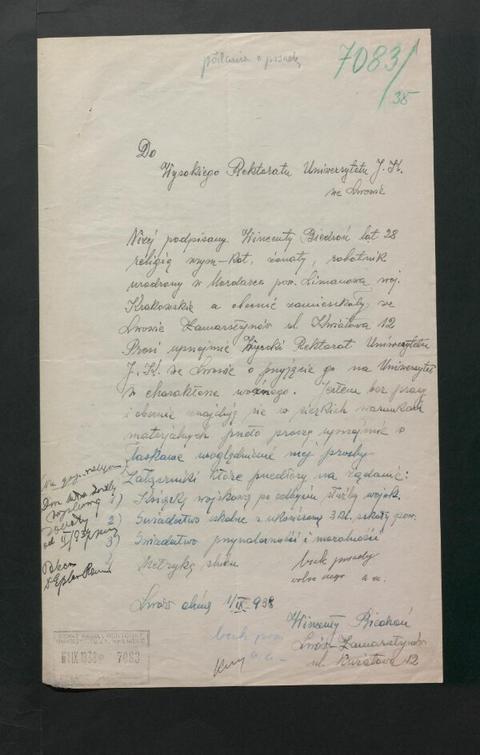 podania o posadę
7083/
38
Do
Wysokiego Rektoratu Uniwersytetu J. K.
we Lwowie
Niżej podpisany Wincenty Biedroń lat 28
religii rzym-kat. żonaty, robotnik
urodzony w Mordarce pow. Limanowa woj.
Krakowskie a obecnie zamieszkały we
Lwowie Zamarstynów ul. Kwiatowa 12
Prosi uprzejmie Wysoki Rektorat Uniwersytetu
J. K. we Lwowie o przyjęcie go na Uniwersytet
w charakterze woźnego. Jestem bez pracy
i obecnie znajduję się w ciężkich warunkach
materjalnych przeto proszę uprzejmie o
łaskawe uwzględnienie mej prośby
Załączniki które przedłożę na żądanie:
1) Książkę wojskową po odbyciu służby wojsk.
2) Świadectwo szkolne z ukończenia 3 kl. szkoły pow.
3) Świadectwo przynależności i moralności
Metrykę ślubu
brak posady
wolnego
Lwów dnia 1/IX 938
Wincenty Biedroń
Lwów-Zamarstynów
ul. Kwiatowa 12
IX 1938
7083